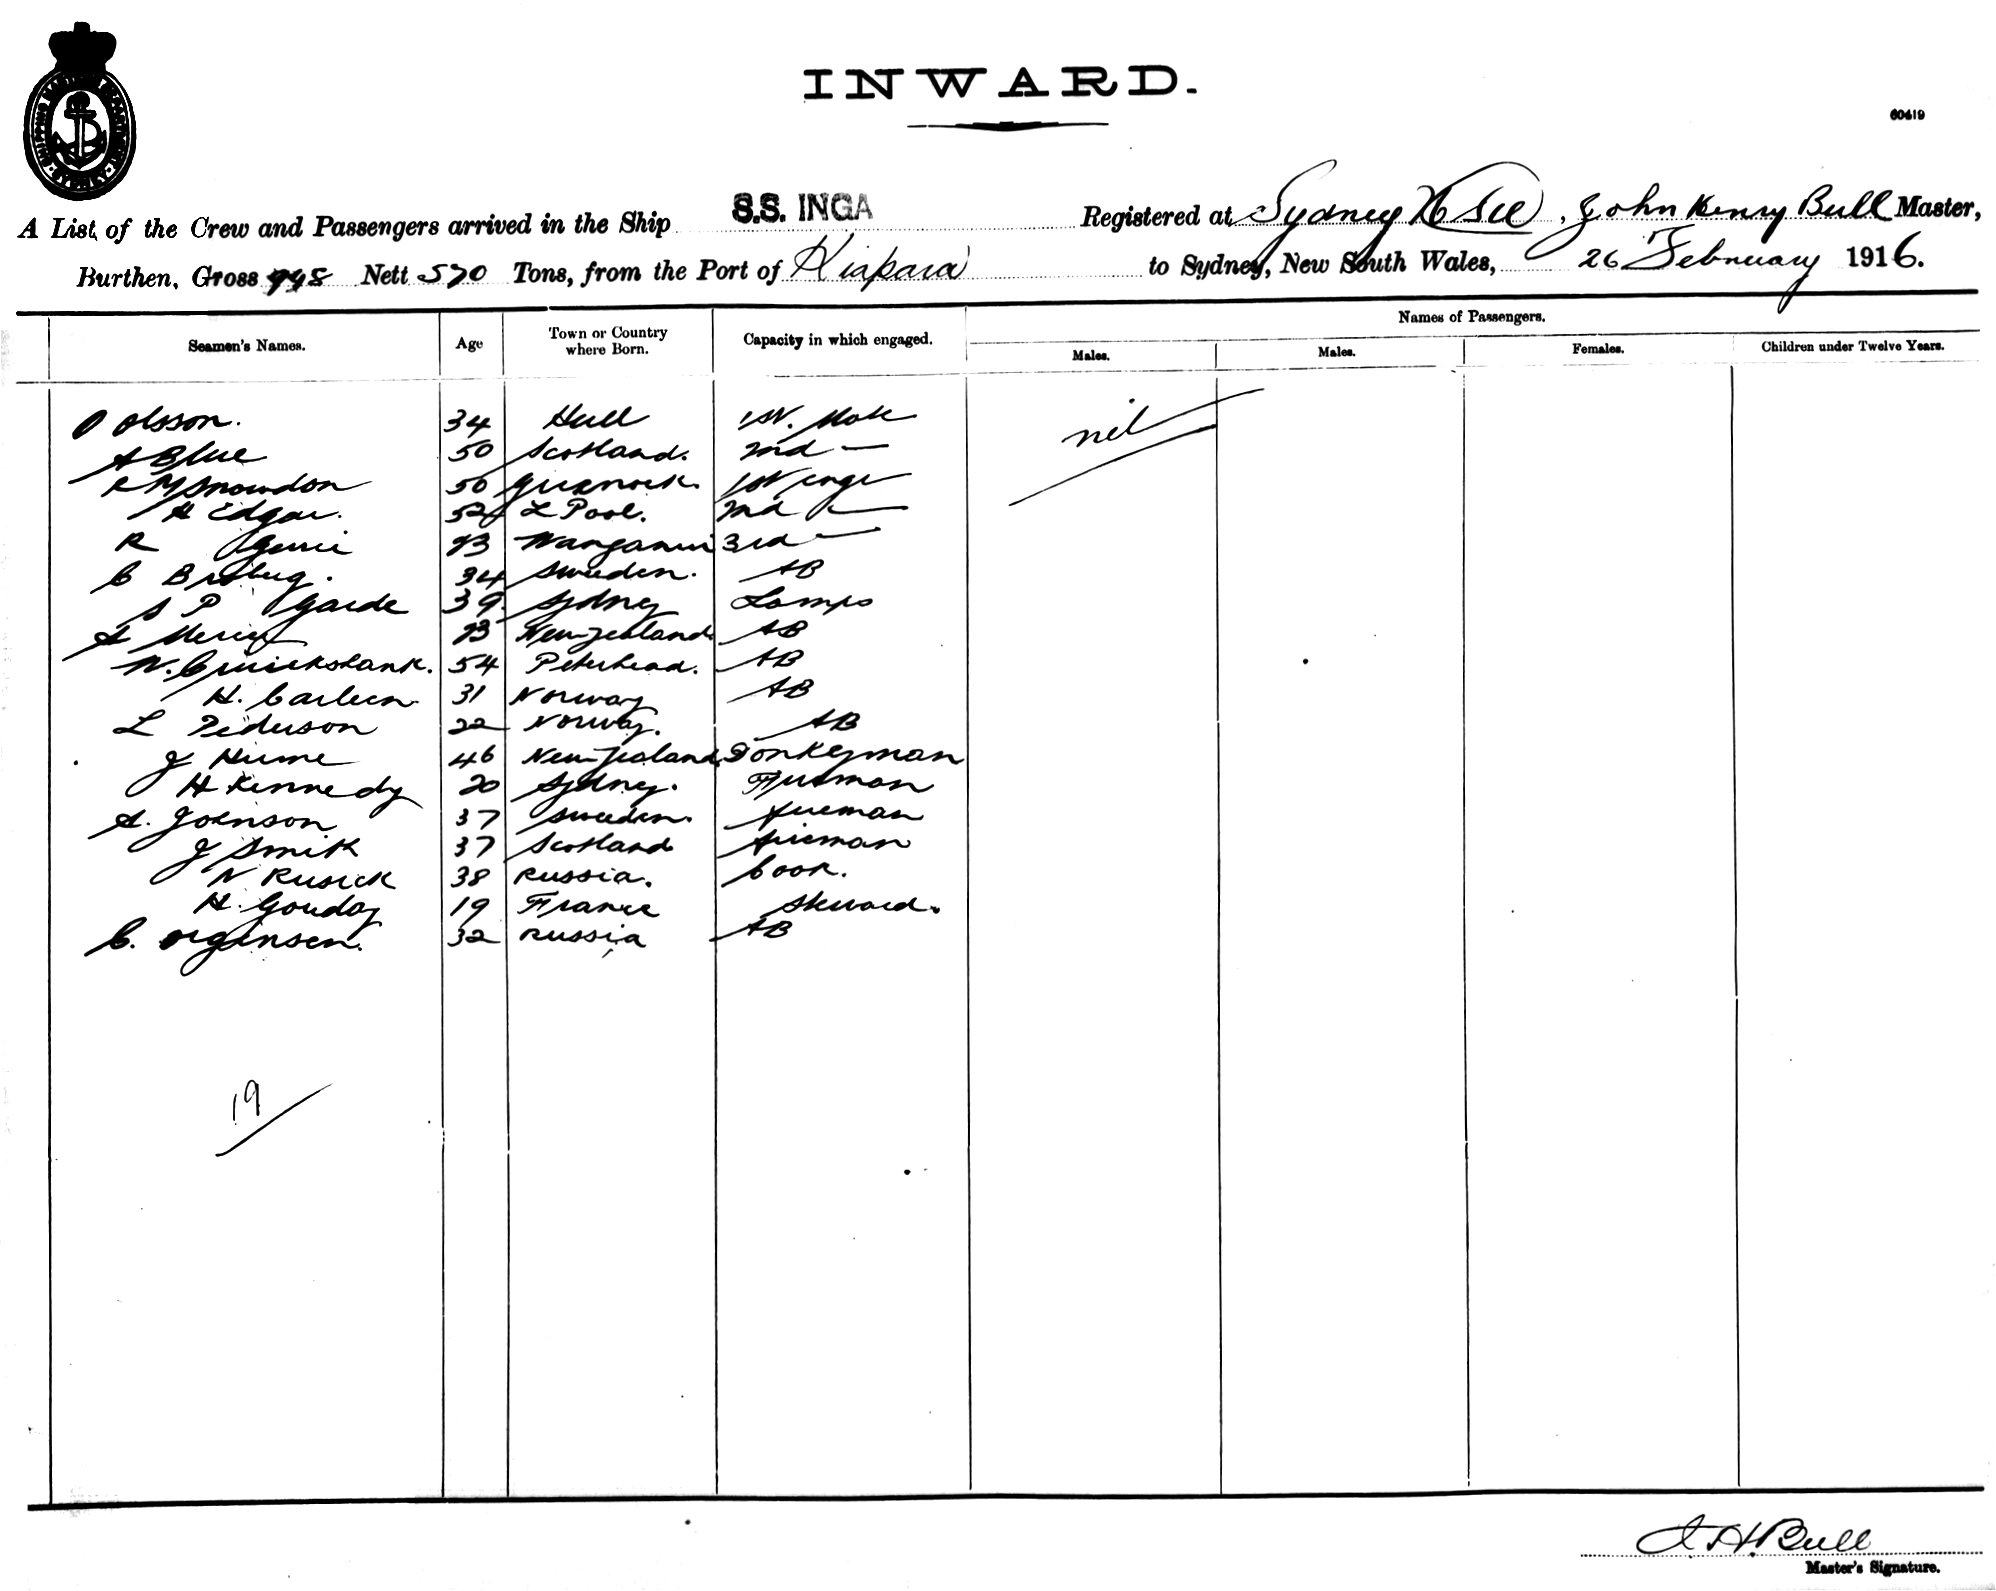 INWARD.
60419
SHIPPING MASTERS DEPARTMENT SYDNEY
A List of the Crew and Passengers arrived in the Ship S.S. INGA Registered at Sydney, John Henry Bull Master,
Burthen, Gross 998 Nett 570 Tons, from the Port of Kiapara to Sydney, New South Wales, 26 February 1916.
Seamen's Names. Age Town or Country where Born. Capacity in which engaged. Names of Passengers.
Males. Males. Females. Children under Twelve Years.
O Olsson. 34 Hull 1st. Mate nil
A Blue 50 Scotland. 2nd —
R M Snowdon 50 Greenock. 1st enge
H Edgar. 52 L Pool. 2nd —
R 23 Wanganui 3rd —
C Broberg. 34 Sweden. AB
S P Garde 39. Sydney Lamps
A 23 New Zealand. AB
W. Cruickshank. 54 Peterhead. AB
H. Carleen 31 Norway AB
L Pederson 22 Norway. AB
J Hume 46 New Zealand Donkeyman
H Kennedy 20 Sydney. Fireman
A. Joenson 37 Sweden. fireman
J Smith 37 Scotland fireman
N Rusick 38 Russia. Cook.
H. Gouday 19 France Steward.
C. Orgensen. 32 Russia AB
19
J. H. Bull
Master's Signature.